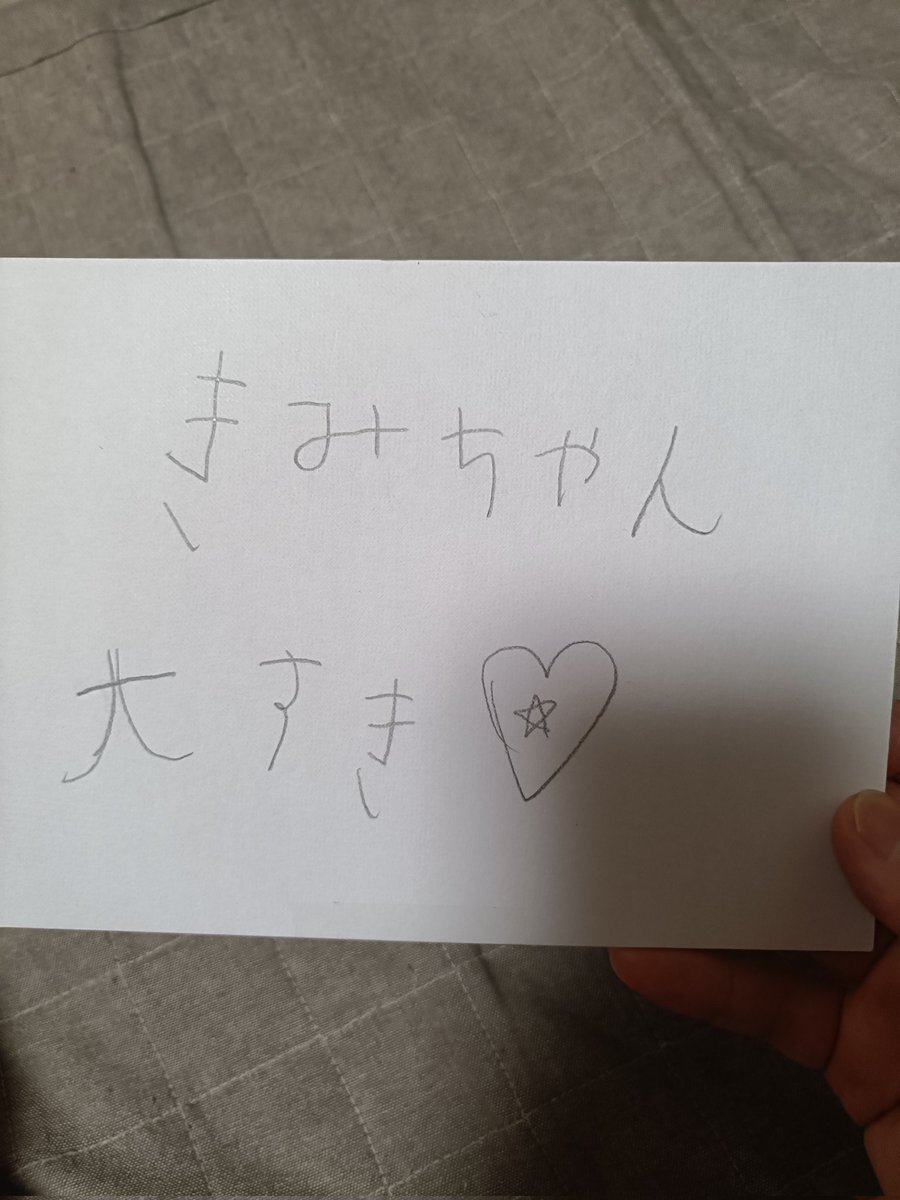 きみちゃん
大すき♡